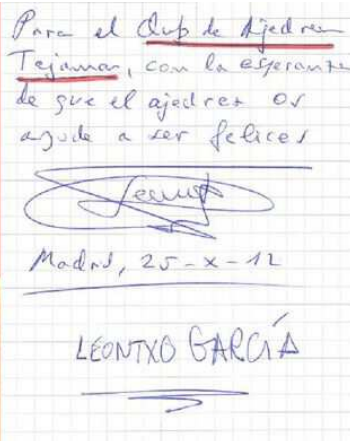 Para el Club de Ajedrez
Tejamar, con la esperanza
de que el ajedrez os
ayude a ser felices
Leontxo
Madrid, 25-X-12
LEONTXO GARCÍA